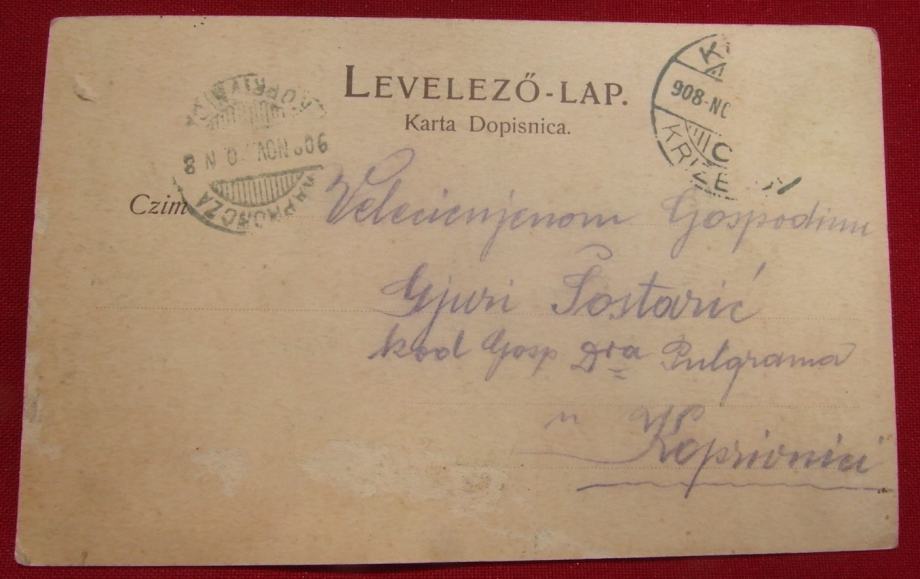 LEVELEZŐ-LAP.
Karta Dopisnica.
908 NOV 0 N 8
KAPRONCZA
908-NO
KRIŽE
Czim
Velecienjenom Gospodinu
Gjuri Šostarić
kod Gosp Dra Pulgrama
u Koprivnici